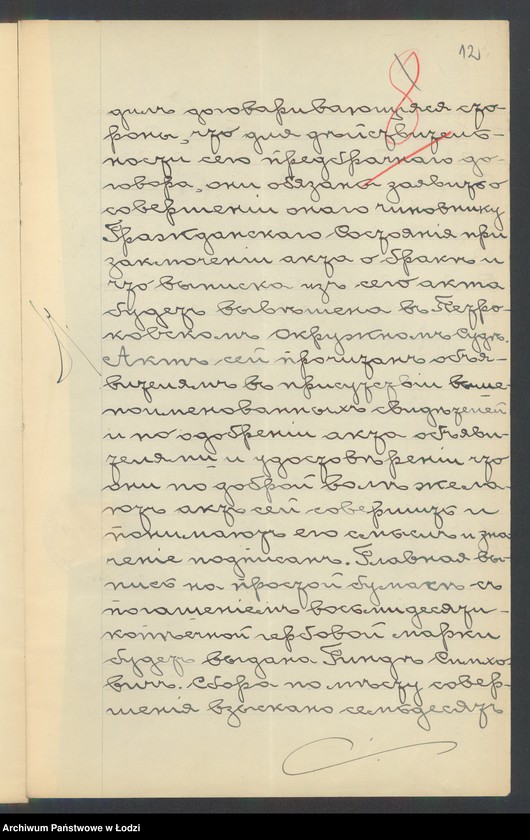 12
8
димъ договаривающіяся сто-
роны, что для дѣйствитель-
ности сего предбрачнаго до-
говора, они обязаны заявить о
совершеніи онаго чиновнику
Гражданскаго Состоянія при
заключеніи акта о бракѣ и
что выписка изъ сего акта
будетъ вывѣшена въ Петро-
ковскомъ Окружномъ Судѣ.
Актъ сей прочитанъ объя-
вителямъ въ присутствіи выше-
поименованныхъ свидѣтелей
и по одобреніи акта объяви-
телями и удостовѣреніи что
они по доброй волѣ жела-
ютъ актъ сей совершить и
понимаютъ его смыслъ и зна-
ченіе подписанъ. Главная вы-
пись на простой бумагѣ съ
погашеніемъ восьмидесяти-
копѣечной гербовой марки
будетъ выдана Гиндѣ Симхо-
вичъ. Сбора по мѣсту совер-
шенія взыскано семьдесятъ
Archiwum Państwowe w Łodzi